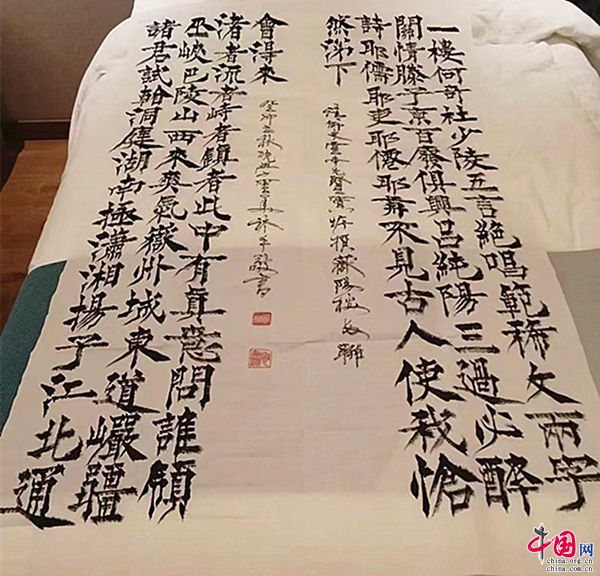 一樓何奇杜少陵五言絶唱範稀文兩字
關情滕子京百廢俱興呂純陽三過必醉
詩耶儒耶吏耶僊耶前不見古人使我愴
然涕下
撰嶽陽樓長聯
諸君試看洞庭湖南極瀟湘揚子江北通
巫峽巴陵山西來爽氣嶽州城東道巖疆
渚者流者峙者鎮者此中有眞意問誰領
會得來
癸卯立秋
書
中国网
china.org.cn
china.com.cn